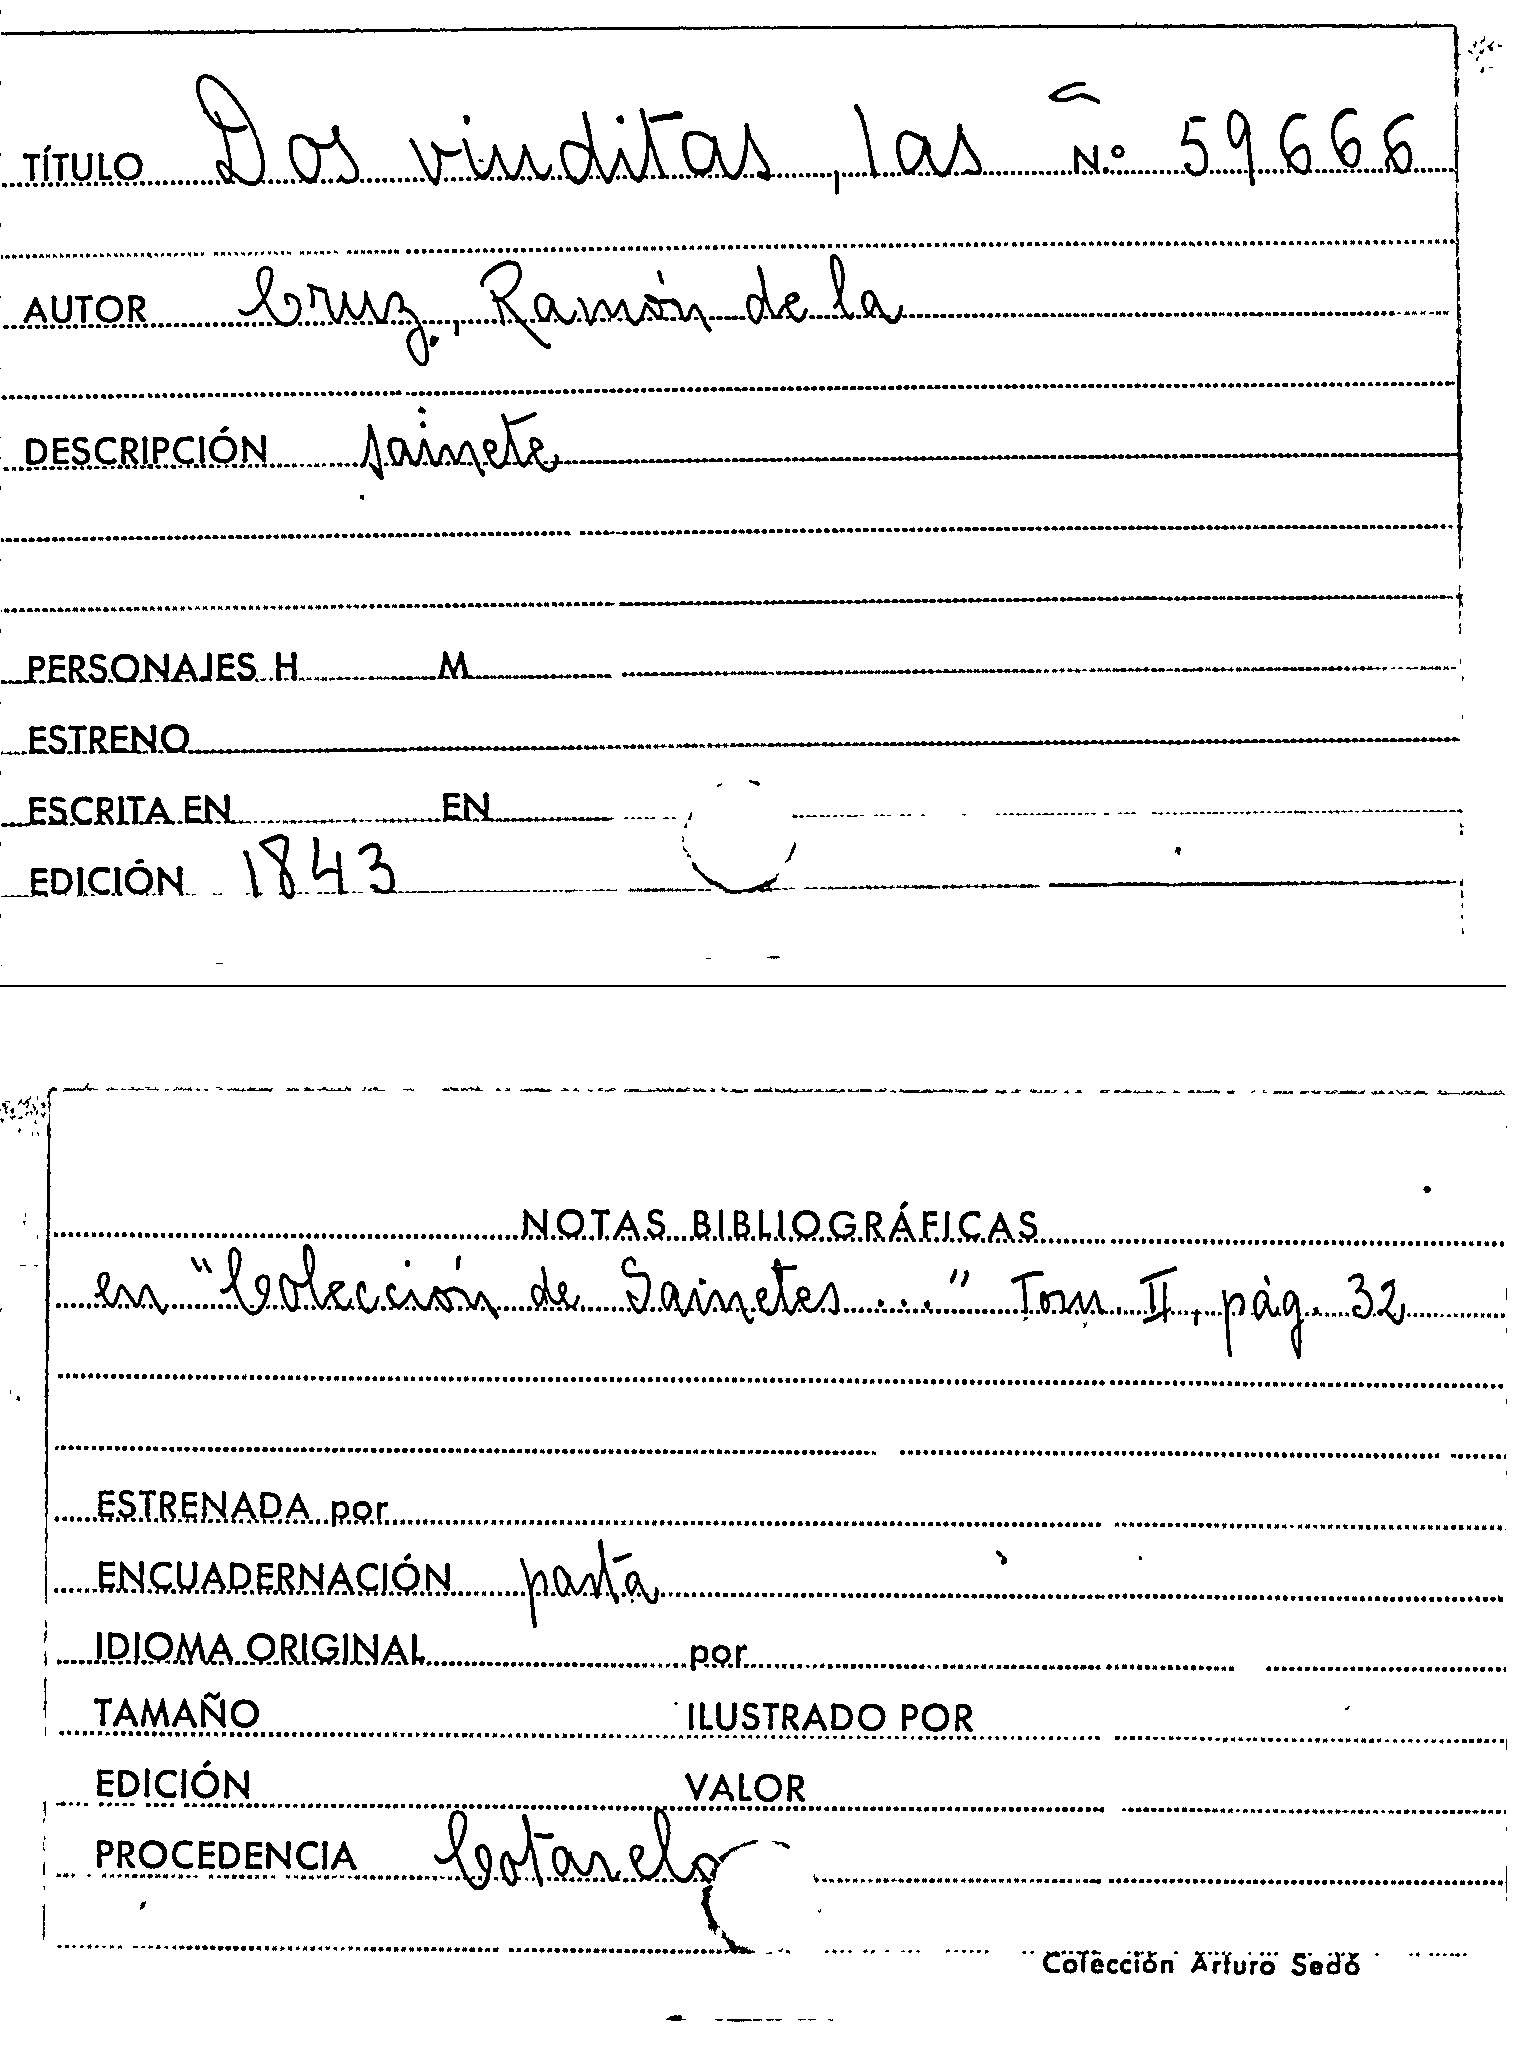 TÍTULO Dos vinditas, las N.º 59666
AUTOR Cruz, Ramón de la
DESCRIPCIÓN sainete
PERSONAJES H M
ESTRENO
ESCRITA EN EN
EDICIÓN 1843
NOTAS BIBLIOGRÁFICAS
en "Colección de Sainetes..." Tom. II, pág. 32
ESTRENADA por
ENCUADERNACIÓN pasta
IDIOMA ORIGINAL por
TAMAÑO ILUSTRADO POR
EDICIÓN VALOR
PROCEDENCIA Cotarelo
Colección Arturo Sedó